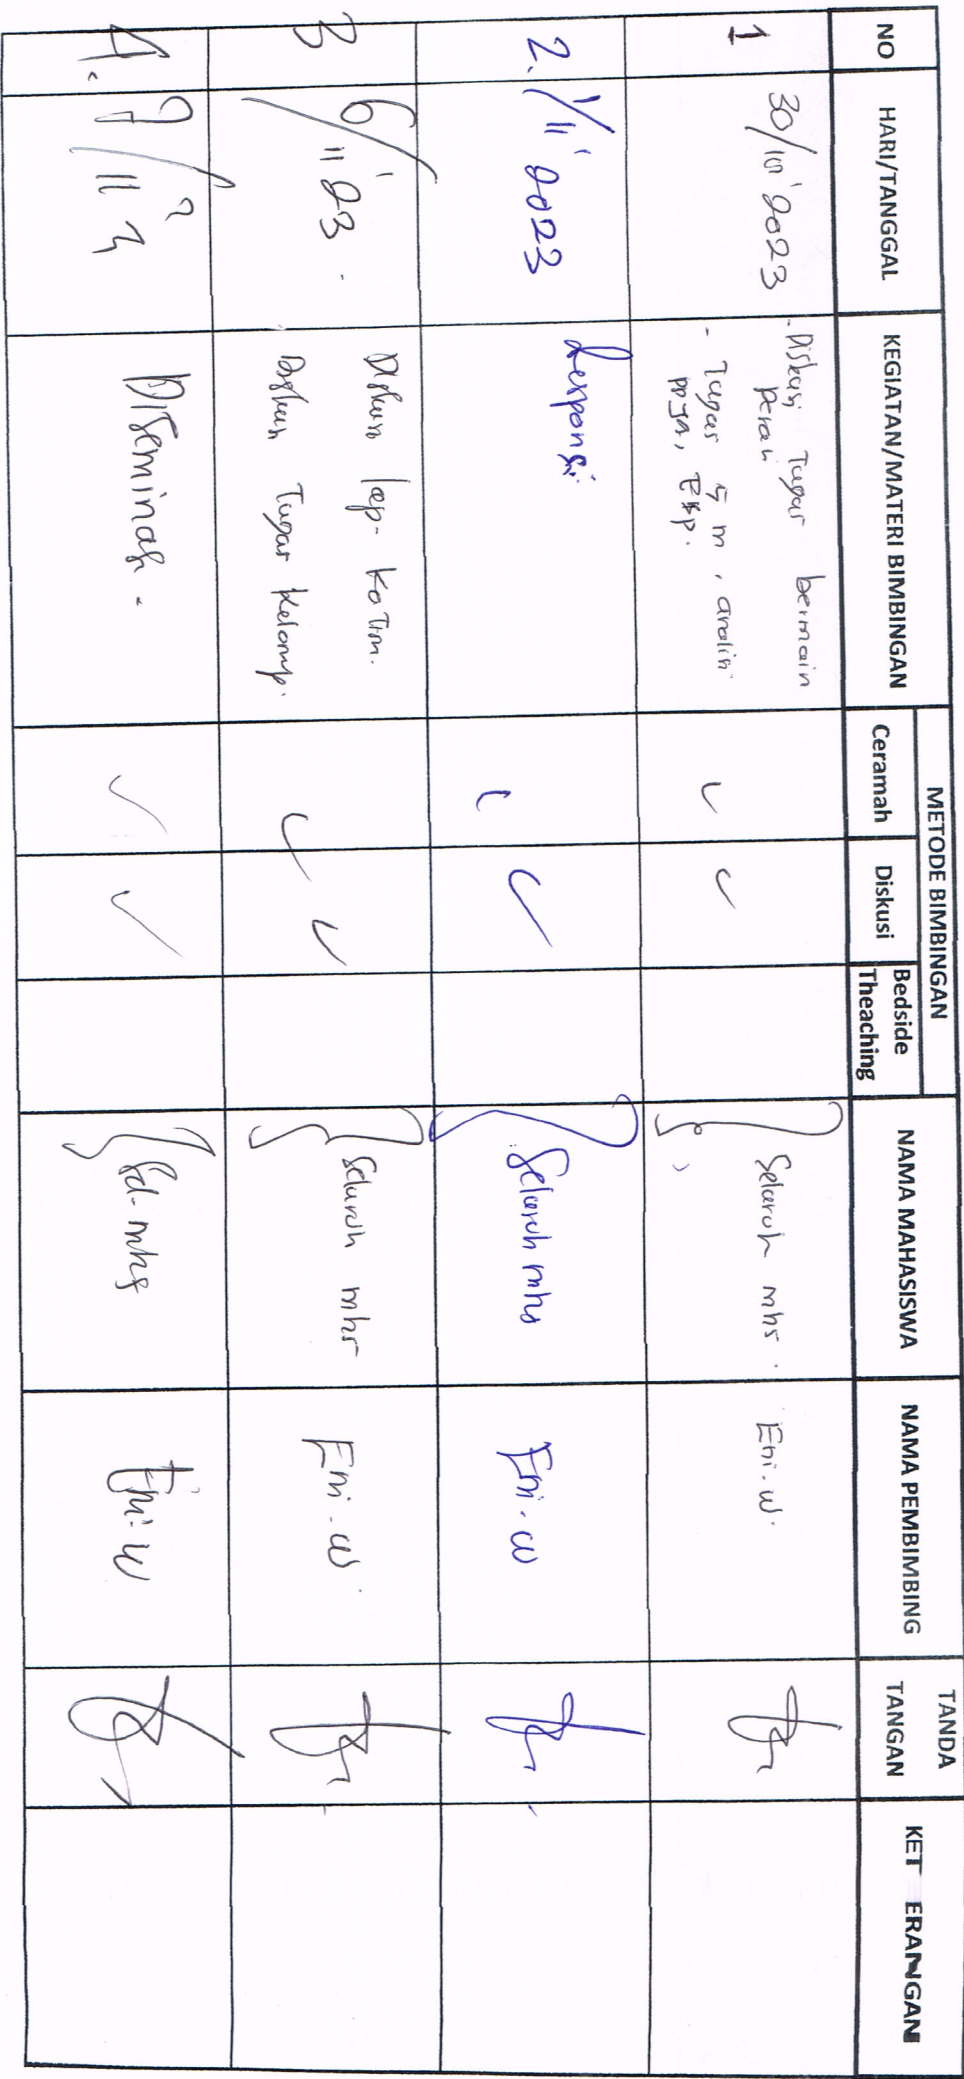 NO
HARI/TANGGAL
KEGIATAN/MATERI BIMBINGAN
METODE BIMBINGAN
Ceramah
Diskusi
Bedside
Theaching
NAMA MAHASISWA
NAMA PEMBIMBING
TANDA
TANGAN
KET ERANGAN
1
30/10'2023
- Diskusi Tugas bermain
peran
- Tugas 5 m, analisis
Seluruh mhs.
Eni.w.
2.
1/11' 2023
Responsi
Seluruh mhs
Eni.w
3
6/11'23.
Diskusi lap. Katim.
Diskusi Tugas Kelomp.
Seluruh mhs
Eni.w.
4.
Diseminasi.
mhs
Eni.w